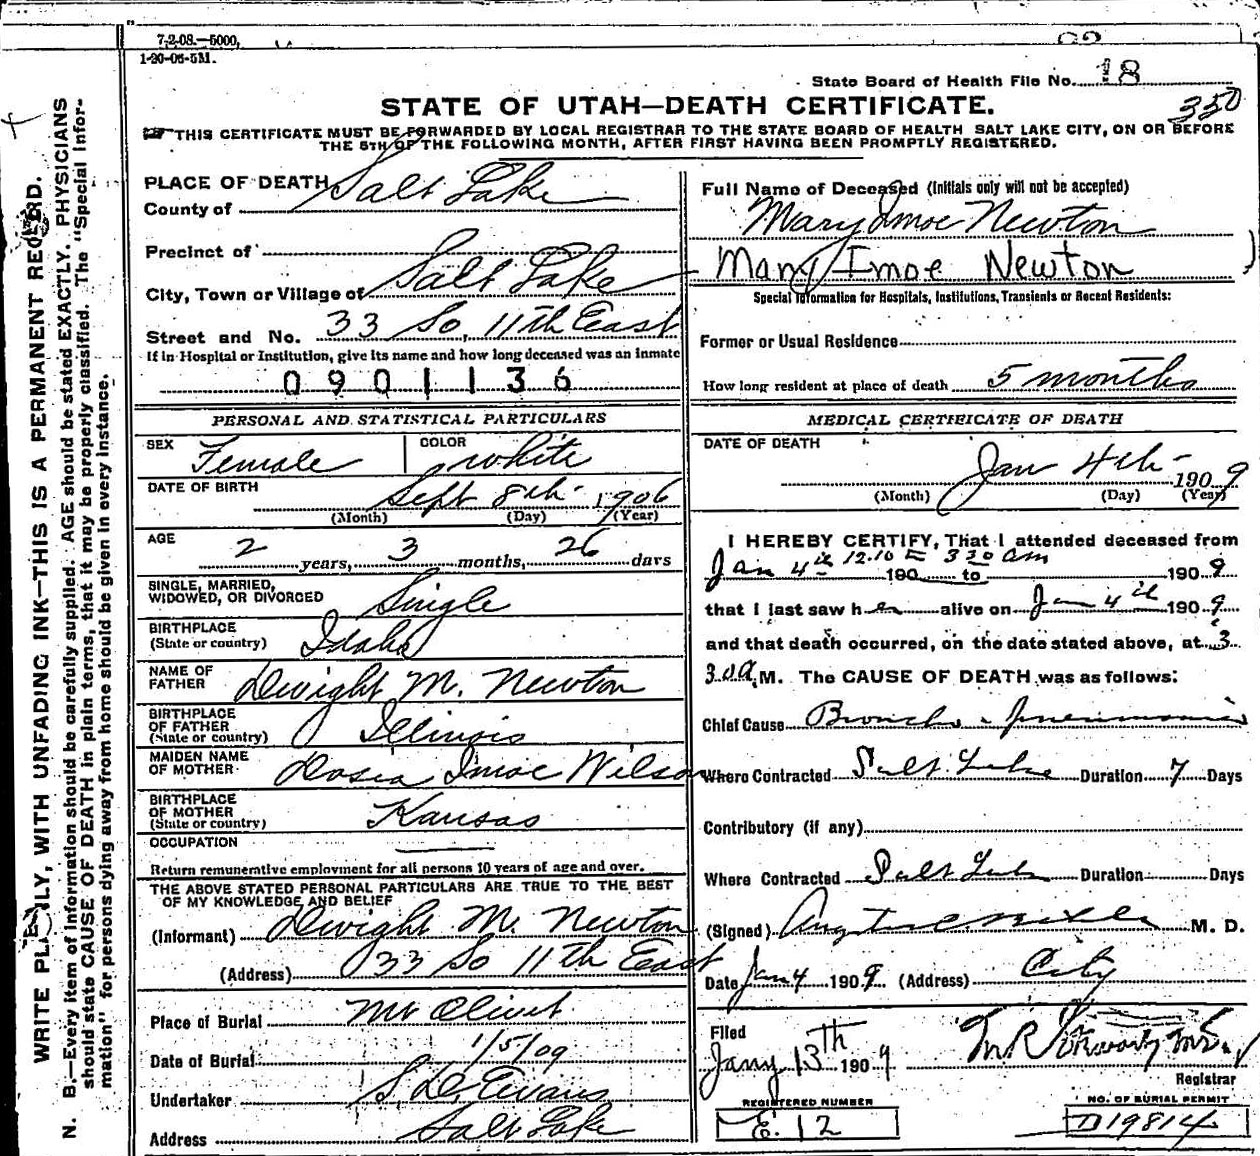 7-2-08.—5000.
1-20-06-5M.
State Board of Health File No. 18
350
STATE OF UTAH—DEATH CERTIFICATE.
THIS CERTIFICATE MUST BE FORWARDED BY LOCAL REGISTRAR TO THE STATE BOARD OF HEALTH SALT LAKE CITY, ON OR BEFORE
THE 5TH OF THE FOLLOWING MONTH, AFTER FIRST HAVING BEEN PROMPTLY REGISTERED.
WRITE PLAINLY, WITH UNFADING INK—THIS IS A PERMANENT RECORD.
N. B.—Every item of information should be carefully supplied. AGE should be stated EXACTLY. PHYSICIANS
should state CAUSE OF DEATH in plain terms, that it may be properly classified. The "Special Infor-
mation" for persons dying away from home should be given in every instance.
PLACE OF DEATH
County of Salt Lake
Precinct of
City, Town or Village of Salt Lake
Street and No. 33 So. 11th East
If in Hospital or Institution, give its name and how long deceased was an inmate
0901136
PERSONAL AND STATISTICAL PARTICULARS
SEX Female COLOR white
DATE OF BIRTH Sept 8th 1906
(Month) (Day) (Year)
AGE 2 years, 3 months, 26 days
SINGLE, MARRIED,
WIDOWED, OR DIVORCED Single
BIRTHPLACE
(State or country) Idaho
NAME OF
FATHER Dwight M. Newton
BIRTHPLACE
OF FATHER
(State or country) Illinois
MAIDEN NAME
OF MOTHER Dosia Imoe Wilson
BIRTHPLACE
OF MOTHER
(State or country) Kansas
OCCUPATION
Return remunerative employment for all persons 10 years of age and over.
THE ABOVE STATED PERSONAL PARTICULARS ARE TRUE TO THE BEST
OF MY KNOWLEDGE AND BELIEF
(Informant) Dwight M. Newton
(Address) 33 So 11th East
Place of Burial Mt Olivet
Date of Burial 1/5/09
Undertaker S. D. Evans
Address Salt Lake
Full Name of Deceased (Initials only will not be accepted)
Mary Imoe Newton
Mary Imoe Newton
Special Information for Hospitals, Institutions, Transients or Recent Residents:
Former or Usual Residence
How long resident at place of death 5 months
MEDICAL CERTIFICATE OF DEATH
DATE OF DEATH
Jan 4th 1909
(Month) (Day) (Year)
I HEREBY CERTIFY, That I attended deceased from
Jan 4th 12.10 to 3 30 am 190 to 1909
that I last saw her alive on Jan 4th 1909
and that death occurred, on the date stated above, at 3
30 a.M. The CAUSE OF DEATH was as follows:
Chief Cause Broncho-pneumonia
Where Contracted Salt Lake Duration 7 Days
Contributory (if any)
Where Contracted Salt Lake Duration Days
(Signed) M. D.
Date Jan 4 1909. (Address) City
Filed
Jany 13th 1909
Registrar
REGISTERED NUMBER
E. 12
NO. OF BURIAL PERMIT
D19814